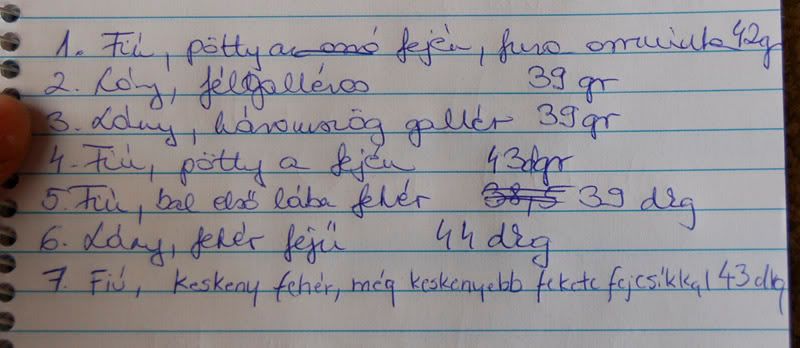 1. Fiú, pötty a fején, fura orrmintá 42g
2. Lány, félgalléros 39 gr
3. Lány, háromszög gallér 39gr
4. Fiú, pötty a fején 43dgr
5. Fiú, bal első lába fehér 38,5 39 dkg
6. Lány, fehér fejű 44 dkg
7. Fiú, keskeny fehér, még keskenyebb fekete fejcsíkkal 43 dkg